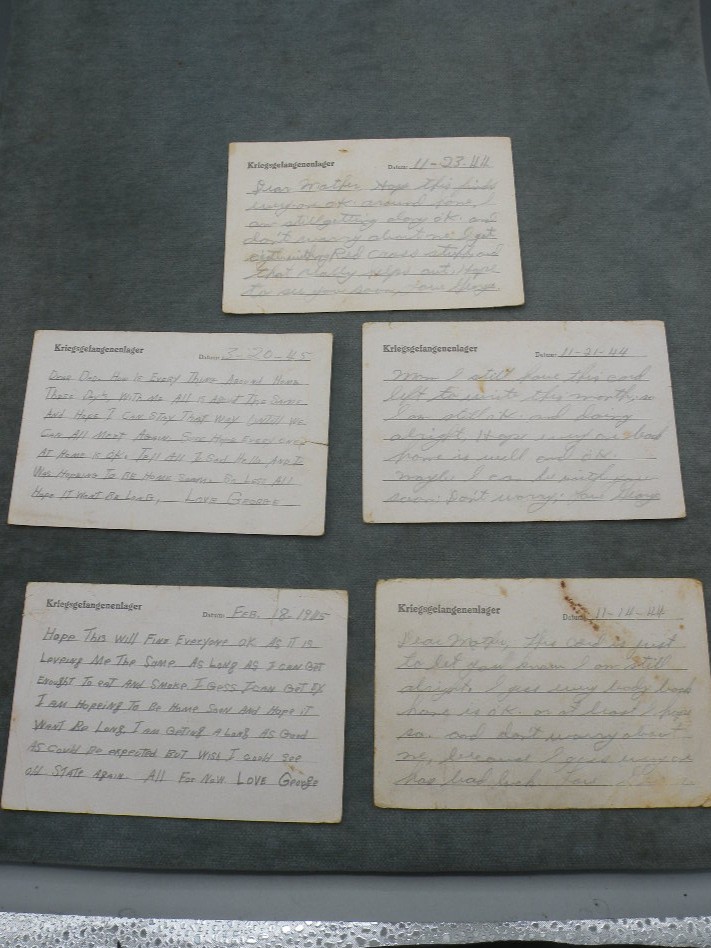 Kriegsgefangenenlager Datum: 11-23-44
Dear Mother Hope this finds
everyone ok. around home, I
am still getting along ok. and
don't worry about me I get
with Red Cross stuff and
that really helps out. Hope
to see you soon. Love George
Kriegsgefangenenlager Datum: 3-20-45
Dear Mom. How is Every Thing Around Home
These Days, With Me All Is About The Same
And Hope I Can Stay That Way Untill We
Can All Meet Again. Sure Hope Every One's
At Home Is Ok. Tell All I Said Hello, And I
Was Hopping To Be Home Sooner. But All
Hope It Want Be Long, Love George
Kriegsgefangenenlager Datum: 11-21-44
Mom I still have this card
left to write this month, so
I am still ok and doing
alright, Hope every one back
home is well and ok.
maybe I can be with you
soon. Don't worry; Love George
Kriegsgefangenenlager Datum: Feb. 18, 1945
Hope This Will Fine Everyone Ok As It Is
Leaveing Me The Same. As Long As I Can Get
Enought To Eat And Smoke I Gess I Can Get By
I Am Hopping To Be Home Soon And Hope It
Want Be Long, I Am Geting Along As Good
As Could Be Expected But Wish I Could See
Old State Again All For Now Love George
Kriegsgefangenenlager Datum: 11-14-44
Dear Mother, This card is just
to let you know I am still
alright. I gess every body back
home is ok. or at least I hope
so. and don't worry about
me, because I gess every one
has bad luck. Love